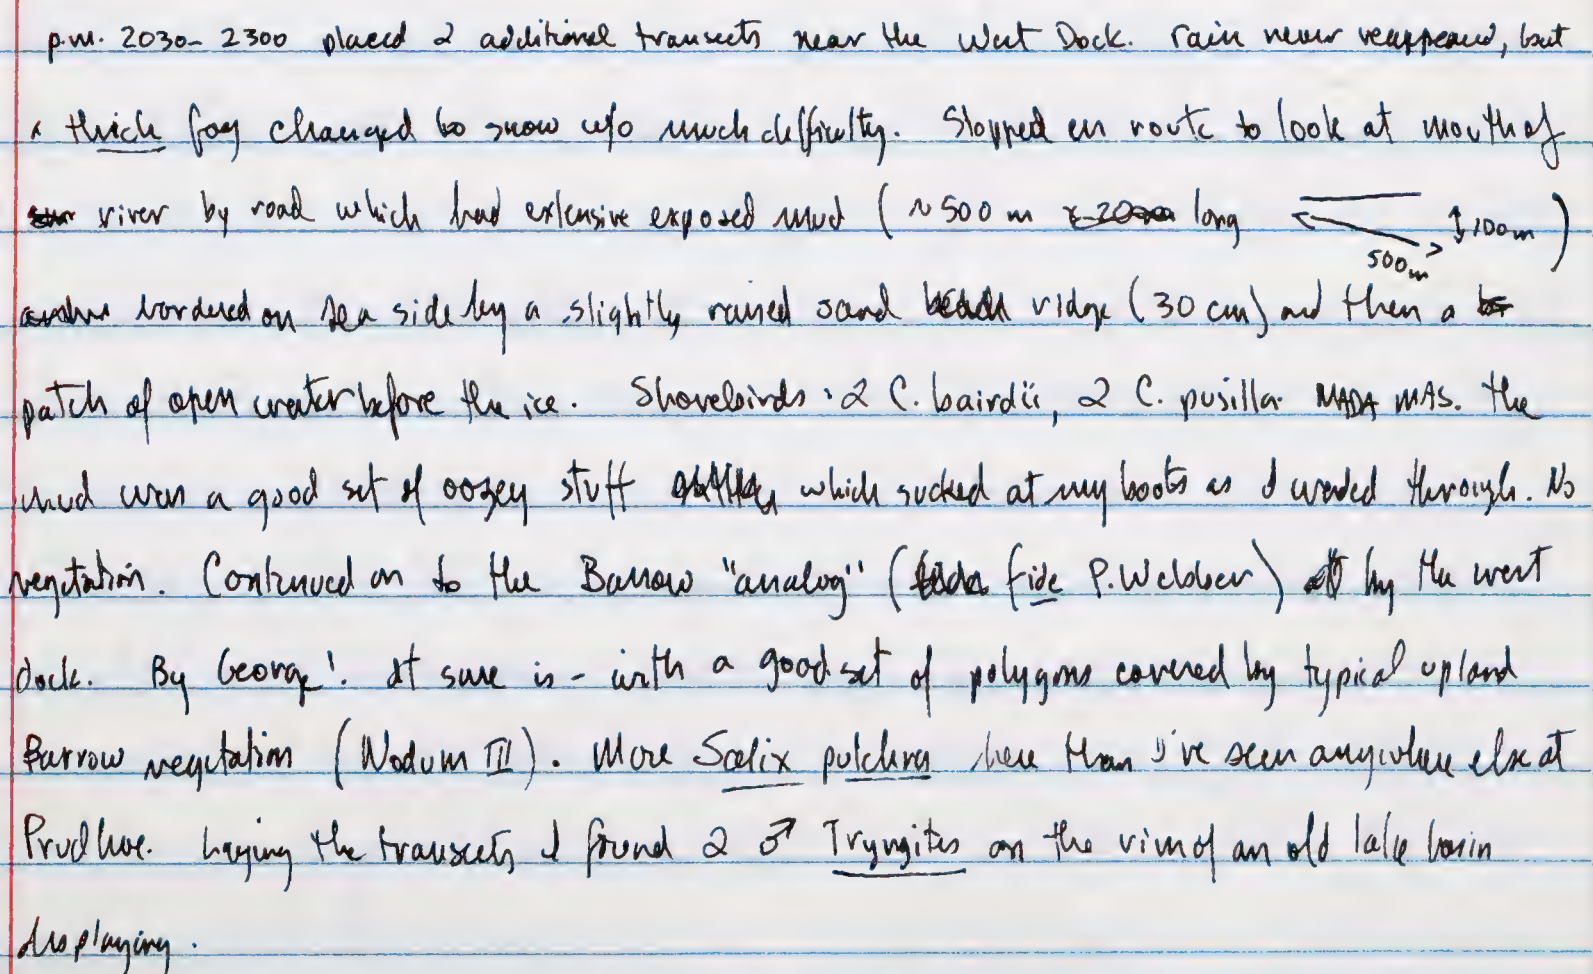 p.m. 2030-2300 placed 2 additional transects near the West Dock. rain never reappeared, but
a thick fog changed to snow w/o much difficulty. Stopped en route to look at mouth of
river by road which had extensive exposed mud (~500 m long 500m 100m)
bordered on sea side by a slightly raised sand ridge (30 cm) and then a
patch of open water before the ice. Shorebirds: 2 C. bairdii, 2 C. pusilla. NADA MAS. the
mud was a good set of oozey stuff which sucked at my boots as I waded through. No
vegetation. Continued on to the Barrow "analog" (fide P. Webber) by the west
dock. By George! It sure is - with a good set of polygons covered by typical upland
Barrow vegetation (Nodum III). More Salix pulchra here than I've seen anywhere else at
Prudhoe. Laying the transects I found 2 ♂ Tryngites on the rim of an old lake basin
displaying.